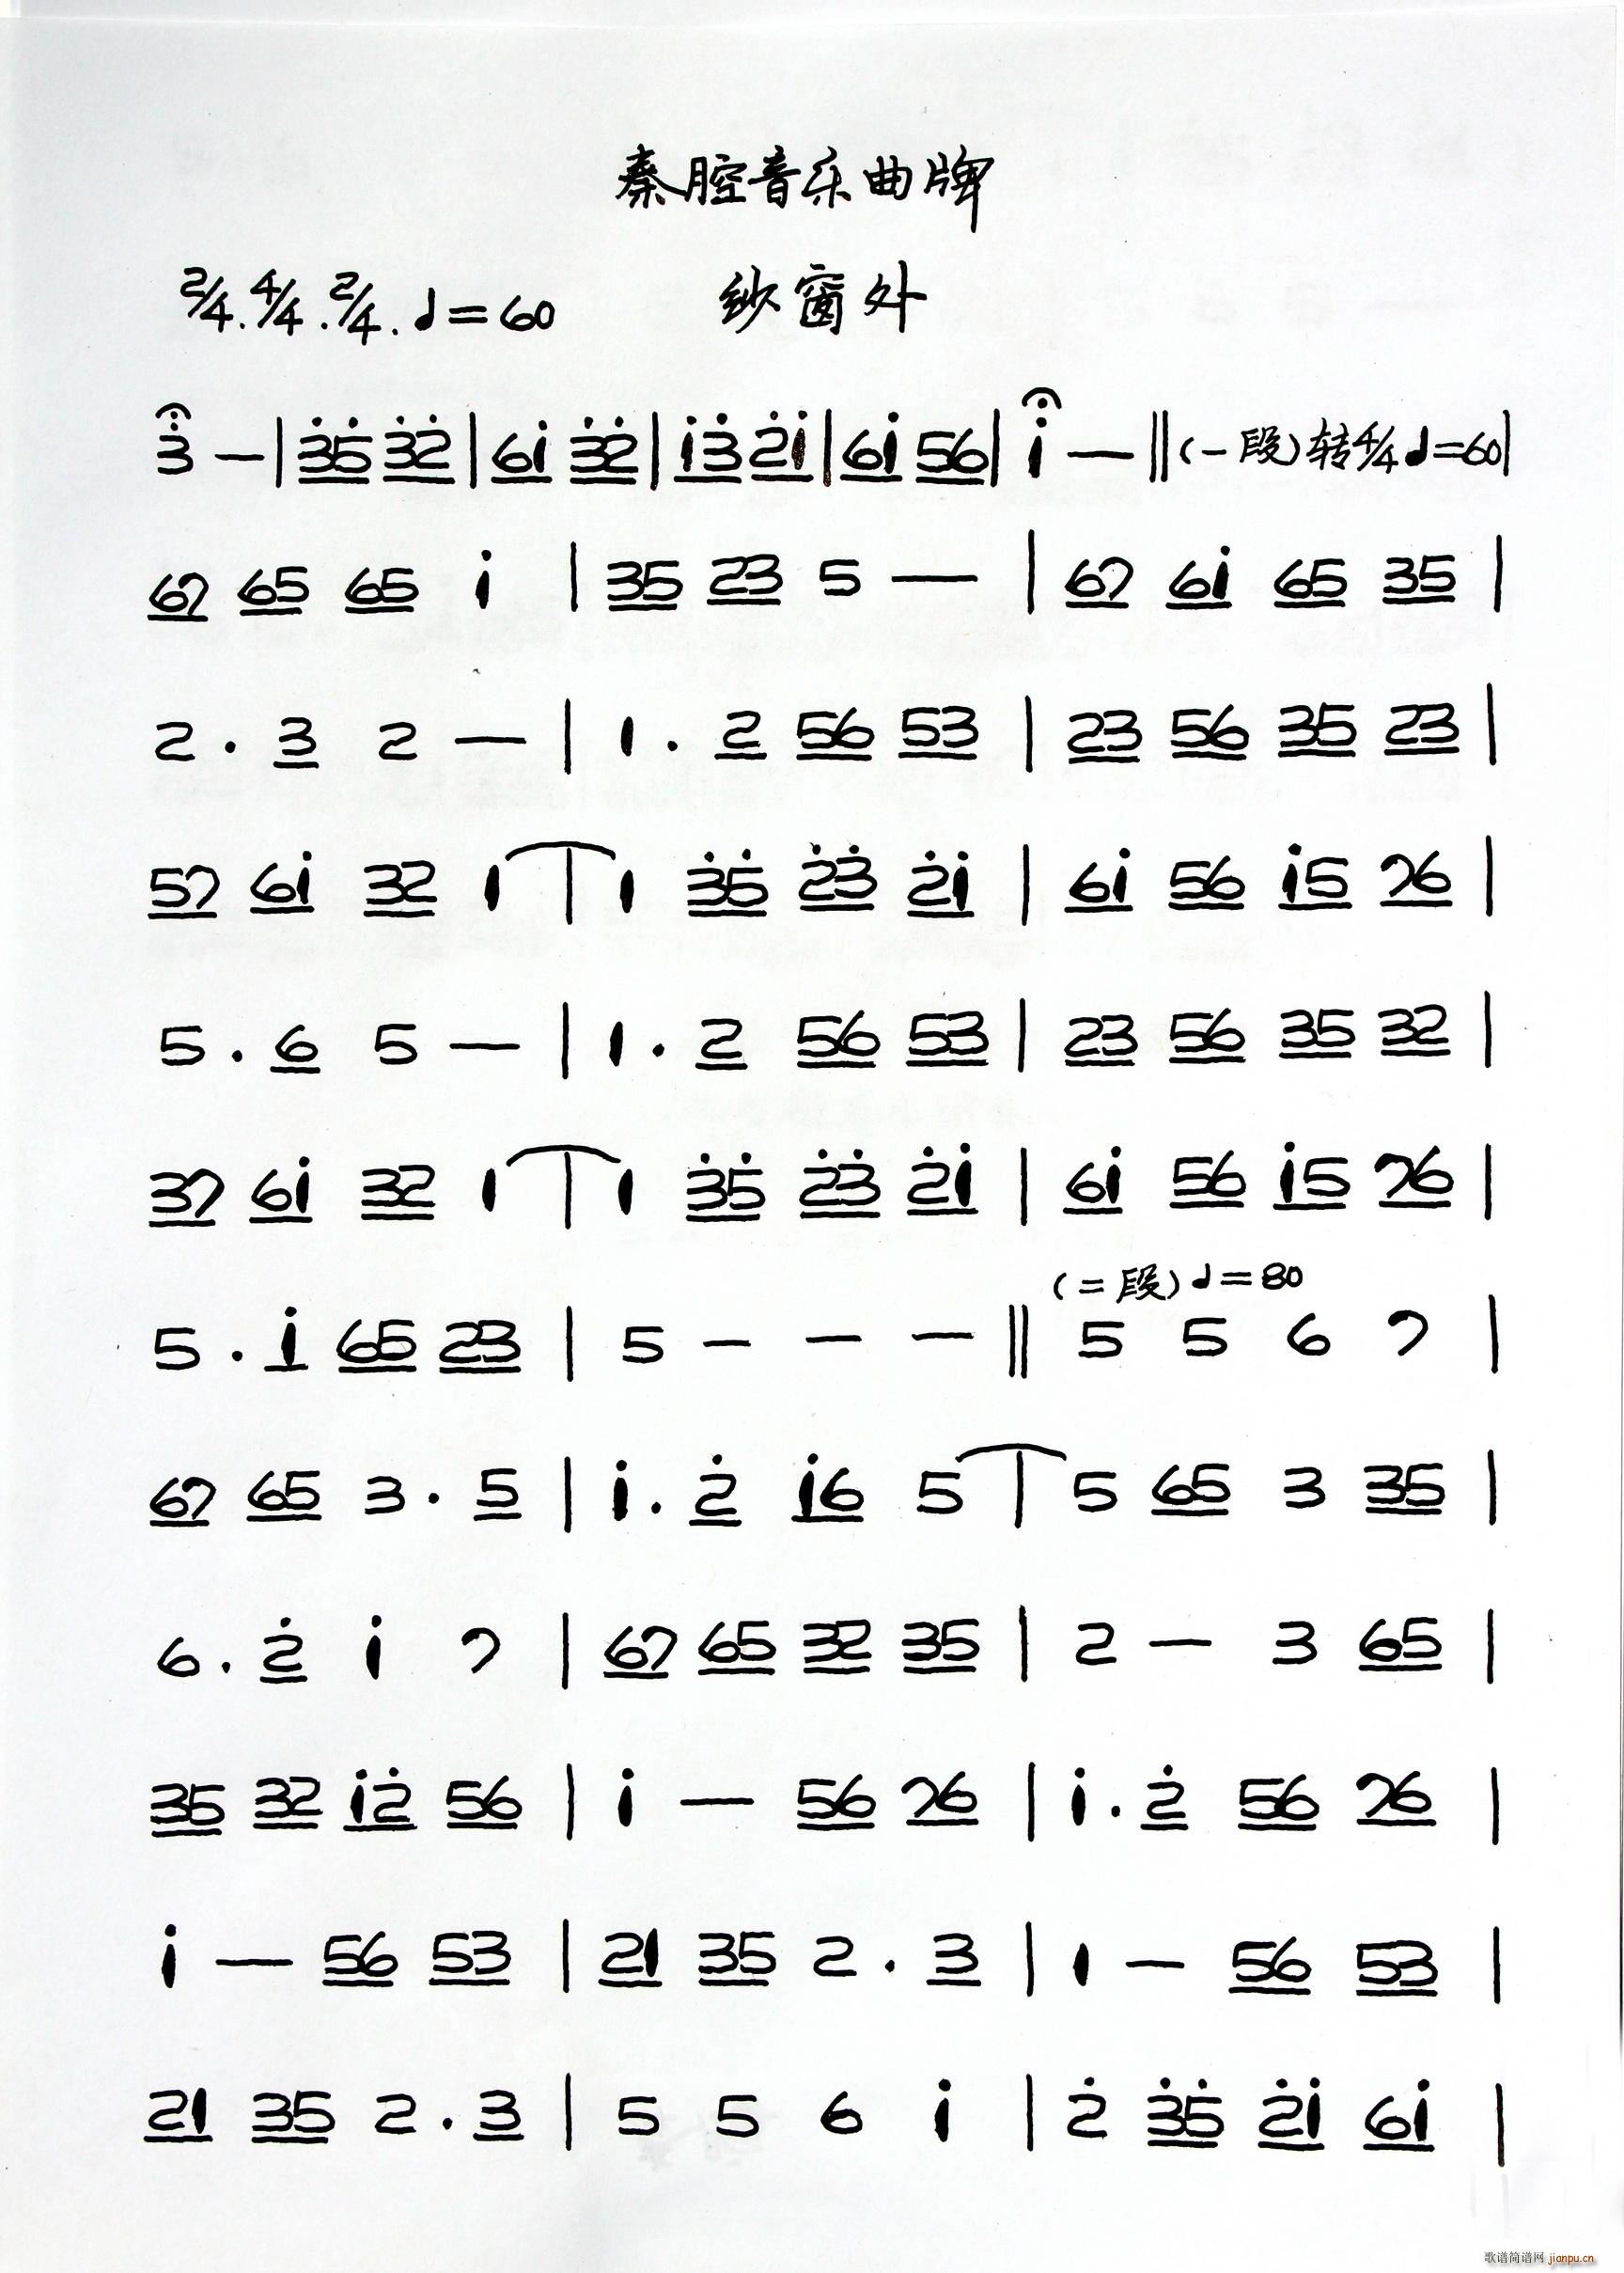 秦腔音乐曲牌
2/4. 4/4. 2/4. ♩=60 纱窗外
3̇ — | 3̇5̇ 3̇2̇ | 61̇ 3̇2̇ | 1̇3̇ 2̇1̇ | 61̇ 56 | 1̇ — ‖ (一段) 转4/4 ♩=60 |
67 65 65 1̇ | 35 23 5 — | 67 61̇ 65 35 |
2 . 3 2 — | 1 . 2 56 53 | 23 56 35 23 |
57 61̇ 32 1 | 1 3̇5̇ 2̇3̇ 2̇1̇ | 61̇ 56 1̇5 76 |
5 . 6 5 — | 1 . 2 56 53 | 23 56 35 32 |
37 61̇ 32 1 | 1 3̇5̇ 2̇3̇ 2̇1̇ | 61̇ 56 1̇5 76 |
(二段) ♩=80
5 . 1̇ 65 23 | 5 — — — ‖ 5 5 6 7 |
67 65 3 . 5 | 1̇ . 2̇ 1̇6 5 | 5 65 3 35 |
6 . 2̇ 1̇ 7 | 67 65 32 35 | 2 — 3 65 |
35 32 1̇2̇ 56 | 1̇ — 56 76 | 1̇ . 2̇ 56 76 |
1̇ — 56 53 | 21 35 2 . 3 | 1 — 56 53 |
21 35 2 . 3 | 5 5 6 1̇ | 2̇ 3̇5̇ 2̇1̇ 61̇ |
歌谱简谱网 jianpu.cn